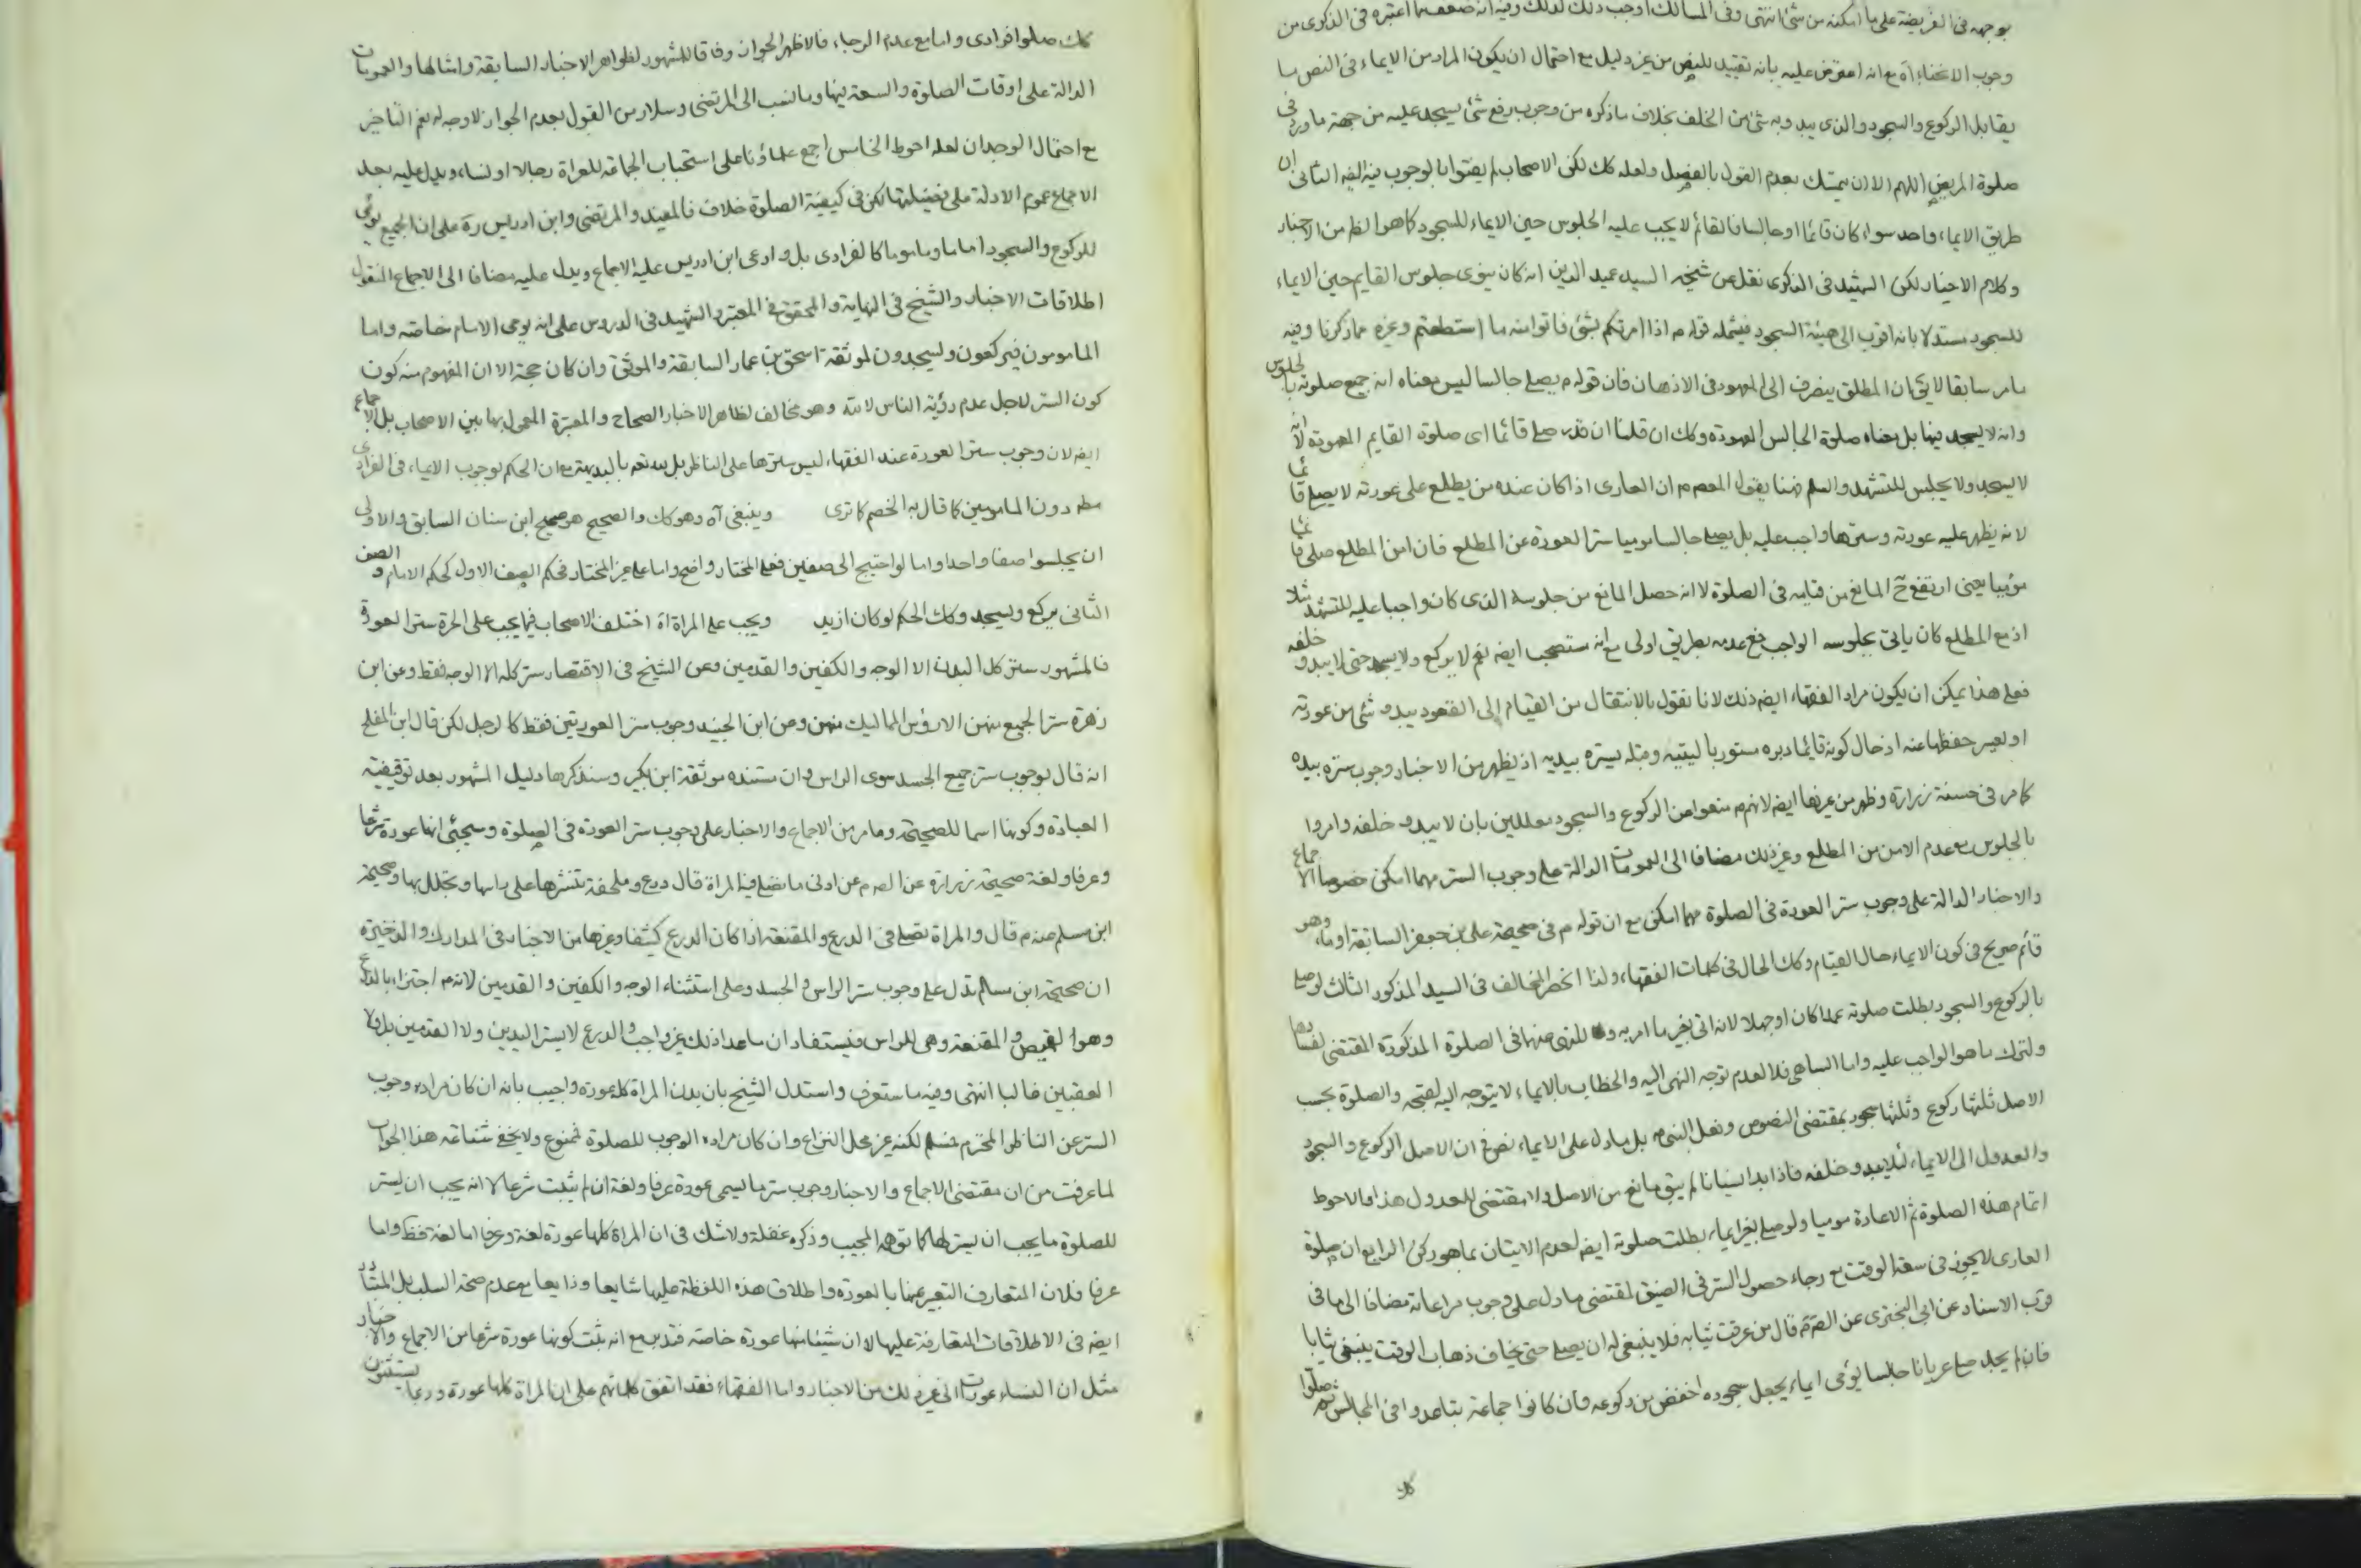 بوجهه فى الفريضة على ما امكنه من شئ انتهى وفى المسالك اوجب ذلك لذلك وفيه انه ضعف ما اعتبره فى الذكرى من
وجوب الانحناء اه مع انه اعترض عليه بانه تقييد للنص من غير دليل مع احتمال ان يكون المراد من الايماء فى النص ما
يقابل الركوع والسجود والذى يبدو به شئ من الخلف بخلاف ما ذكره من وجوب رفع شئ يسجد عليه من جهة ما ورد فى
صلوة المريض اللهم الا ان يتمسك بعدم القول بالفصل ولعله كك لكن الاصحاب لم يفتوا بالوجوب فيه ايضا الثانى ان
طريق الايماء واحد سواء كان قائما او جالسا فالقائم لا يجب عليه الجلوس حين الايماء للسجود كما هو الظ من الاخبار
وكلام الاخيار لكن الشهيد فى الذكرى نقل عن شيخه السيد عميد الدين انه كان يقوى جلوس القايم حين الايماء
للسجود مستدلا بانه اقرب الى هيئة السجود فيشمله قوله م اذا امرتكم بشئ فاتوا منه ما استطعتم وغيره مما ذكرنا وفيه
ما مر سابقا لا يق ان المطلق ينصرف الى المعهود فى الاذهان فان قوله م يصلى جالسا ليس معناه ان جميع صلوته بالجلوس
وانه لا يسجد فيها بل معناه صلوة الجالس المعهودة وكك ان قلنا ان قدر صلى قائما اى صلوة القايم المعهودة لانه
لا يسجد ولا يجلس للتشهد والسلم فهنا يقول المعصوم ان العارى اذا كان عنده من يطلع على عورته لا يصلى قائما
لانه يظهر عليه عورته وسترها واجب عليه بل يصلى جالسا موميا سترا لعورة عن المطلع فان امن المطلع صلى قائما
موميا يعنى ارتفع ح المانع من قيامه فى الصلوة لا انه حصل المانع من جلوسه الذى كان واجبا عليه للتشهد مثلا
اذ مع المطلع كان ياتى بجلوسه الواجب فمع عدمه بطريق اولى مع انه مستصحب ايضه نعم لا يركع ولا يسجد حتى لا يبدو خلفه
فعلى هذا يمكن ان يكون مراد الفقهاء ايضه ذلك لانا نقول بالانتقال من القيام الى القعود يبدو شئ من عورته
او يعسر حفظها عنه اذ حال كونه قائما دبره مستور باليتيه وقبله يستره بيديه اذ يظهر من الاخبار وجوب ستره بيده
كما مر فى حسنة زرارة وظهر من غيرها ايضه لانهم م منعوا من الركوع والسجود معللين بان لا يبدو خلفه وامروا
بالجلوس مع عدم الامن من المطلع وغير ذلك مضافا الى العمومات الدالة على وجوب الستر مهما امكن خصوصا الاجماع
والاخبار الدالة على وجوب ستر العورة فى الصلوة مهما امكن مع ان قوله م فى صحيحة على بن جعفر السابقة اوماء وهو
قائم صريح فى كون الايماء حال القيام وكك الحال فى كلمات الفقهاء ولذا انحصر المخالف فى السيد المذكور الثالث لو صلى
بالركوع والسجود بطلت صلوته عمدا كان او جهلا لانه اتى بغير ما امر به و للنهى عنهما فى الصلوة المذكورة المقتضى لفسادها
ولترك ما هو الواجب عليه واما الساهى فلا لعدم توجه النهى اليه والخطاب بالايماء لا يتوجه اليه لقبحه والصلوة بحسب
الاصل ثلثها ركوع وثلثها سجود بمقتضى النصوص وفعل النبى ص بل ما دل على الايماء نص فى ان الاصل الركوع والسجود
والعدول الى الايماء لئلا يبدو خلفه فاذا بدا نسيانا لم يبق مانع من الاصل ولا مقتضى للعدول هذا والاحوط
اتمام هذه الصلوة ثم الاعادة موميا ولو صلى بغير ايماء بطلت صلوته ايضه لعدم الاتيان بما هو ركن الرابع ان صلوة
العارى لا يجوز فى سعة الوقت مع رجاء حصول الستر فى الضيق لمقتضى ما دل على وجوب مراعاته مضافا الى ما فى
قرب الاسناد عن ابى البخترى عن الصم قال من غرقت ثيابه فلا ينبغى له ان يصلى حتى يخاف ذهاب الوقت يبتغى ثيابا
فان لم يجد صلى عريانا جالسا يومى ايماء يجعل سجوده اخفض من ركوعه فان كانوا جماعة تباعدوا فى المجالس ثم صلوا
كك
كك صلوا فرادى واما مع عدم الرجاء فالاظهر الجواز وفاقا للمشهور لظواهر الاخبار السابقة وامثالها والعمومات
الدالة على اوقات الصلوة والسعة فيها وما نسب الى المرتضى وسلار من القول بعدم الجواز لا وجه له نعم التاخير
مع احتمال الوجدان لعله احوط الخامس اجمع علماؤنا على استحباب الجماعة للعراة رجالا او نساء ويدل عليه بعد
الاجماع عموم الادلة على فضيلتها لكن فى كيفية الصلوة خلاف فالمفيد والمرتضى وابن ادريس ره على ان الجميع يومى
للركوع والسجود اماما وماموما كالفرادى بل وادعى ابن ادريس عليه الاجماع ويدل عليه مضافا الى الاجماع المنقول
اطلاقات الاخبار والشيخ فى النهاية والمحقق فى المعتبر والشهيد فى الدروس على انه يومى الامام خاصة واما
المامومون فيركعون ويسجدون لموثقة اسحق بن عمار السابقة والموثق وان كان حجة الا ان المفهوم منه كون
كون الستر لاجل عدم رؤية الناس لا لله وهو مخالف لظاهر الاخبار الصحاح والمعتبرة المعمول بها بين الاصحاب بل الاجماع
ايضه لان وجوب ستر العورة عند الفقهاء ليس سترها على الناظر بل لله تعه بالبديهة مع ان الحكم بوجوب الايماء فى الفرادى
مطه دون المامومين كما قال به الخصم كما ترى وينبغى آه وهو كك والصحيح هو صحيح ابن سنان السابق والاولى
ان يجلسوا صفا واحدا واما لو احتيج الى صفين فعلى المختار واضح واما على غير المختار فحكم الصف الاول كحكم الامام والصف
الثانى يركع ويسجد وكك الحكم لو كان ازيد ويجب على المراة آه اختلف الاصحاب فيما يجب على الحرة ستر العورة
فالمشهور ستر كل البدن الا الوجه والكفين والقدمين وعن الشيخ فى الاقتصار ستر كله الا الوجه فقط وعن ابن
زهرة ستر الجميع منهن الا رؤس المماليك منهن وعن ابن الجنيد وجوب ستر العورتين فقط كالرجل لكن قال ابن المفلح
انه قال بوجوب ستر جميع الجسد سوى الراس وان مستنده موثقة ابن بكير وسنذكرها دليل المشهور بعد توقيفية
العبادة وكونها اسما للصحيحة وما مر من الاجماع والاخبار على وجوب ستر العورة فى الصلوة وسيجئ انها عورة شرعا
وعرفا ولغة صحيحة زرارة عن الصم عن ادنى ما تصلى فيه المراة قال درع وملحفة تنشرها على راسها وتجلل بها وصحيحة
ابن مسلم عنه م قال والمراة تصلى فى الدرع والمقنعة اذا كان الدرع كثيفا وغيرها من الاخبار فى المدارك والذخيرة
ان صحيحة ابن مسلم تدل على وجوب ستر الراس والجسد وعلى استثناء الوجه والكفين والقدمين لانه م اجتزاء بالدرع
وهو القميص والمقنعة وهى للراس فيستفاد ان ما عدا ذلك غير واجب والدرع لا يستر اليدين ولا القدمين بل ولا
العقبين غالبا انتهى وفيه ما ستعرف واستدل الشيخ بان بدن المراة كله عورة واجيب بانه ان كان مراده وجوب
الستر عن الناظر المحترم فمسلم لكنه غير محل النزاع وان كان مراده الوجوب للصلوة فممنوع ولا يخفى شناعة هذا الجواب
لما عرفت من ان مقتضى الاجماع والاخبار وجوب ستر ما يسمى عورة عرفا ولغة ان لم يثبت شرعا لا انه يجب ان يستر
للصلوة ما يجب ان يستر لها كما توهمه المجيب وذكره غفلة ولا شك فى ان المراة كلها عورة لغة وعرفا اما لغة فظ واما
عرفا فلان المتعارف التعبير عنها بالعورة واطلاق هذه اللفظة عليها شايعا وذايعا مع عدم صحة السلب بل المتبادر
ايضه فى الاطلاقات المتعارفة عليها لا ان شيئا منها عورة خاصة فتدبر مع انه ثبت كونها عورة شرعا من الاجماع والاخبار
مثل ان النساء عورات الى غير ذلك من الاخبار واما الفقهاء فقد اتفق كلماتهم على ان المراة كلها عورة وربما يستثنون